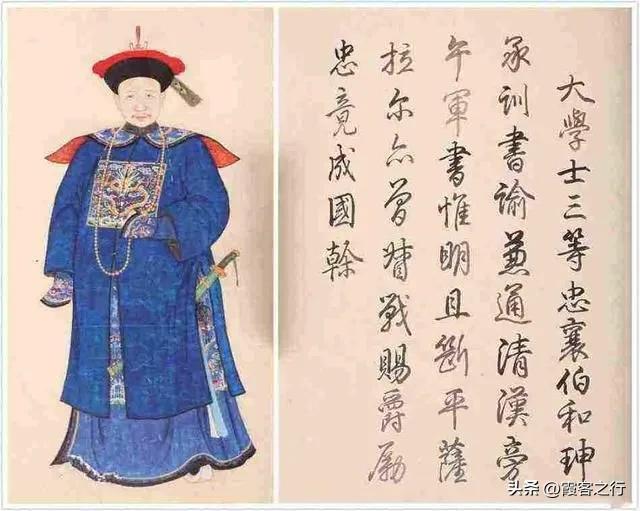 大學士三等忠襄伯和珅
承訓書諭兼通清漢旁
午軍書惟明且斷平薩
拉尔亦曾督戰賜爵勵
忠竟成國幹
头条 @霞客之行